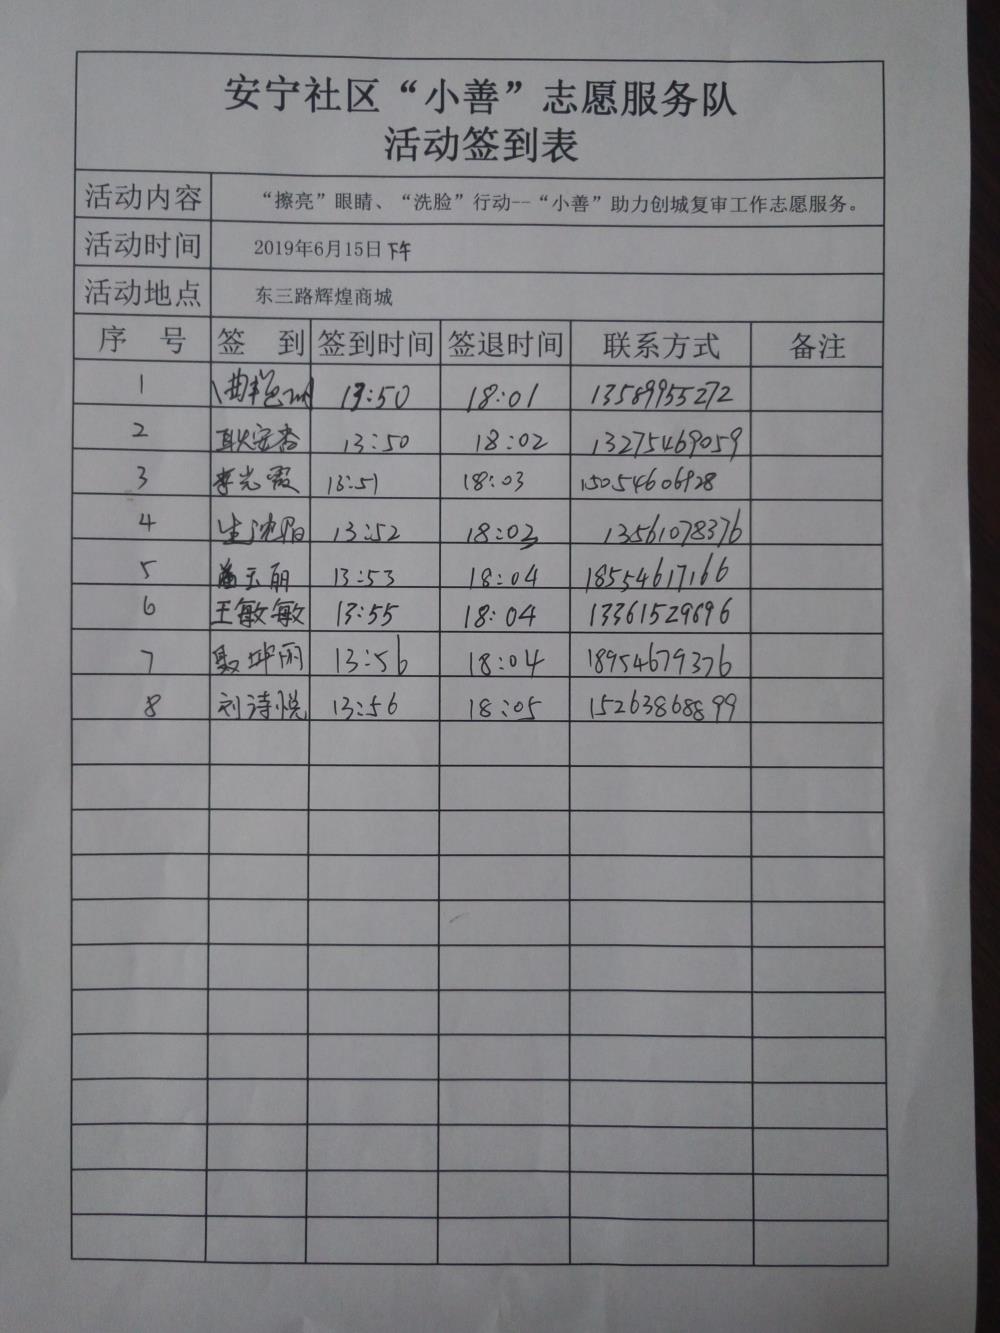 安宁社区“小善”志愿服务队
活动签到表
活动内容 “擦亮”眼睛、“洗脸”行动--“小善”助力创城复审工作志愿服务。
活动时间 2019年6月15日下午
活动地点 东三路辉煌商城
序 号 签 到 签到时间 签退时间 联系方式 备注
1 13:50 18:01 13589955272
2 耿安香 13:50 18:02 13275469059
3 李光霞 13:51 18:03 15054606928
4 13:52 18:03 13561078376
5 玉丽 13:53 18:04 18554617166
6 王敏敏 13:55 18:04 13361529696
7 聂坤丽 13:56 18:04 18954679376
8 刘诗悦 13:56 18:05 15263868899